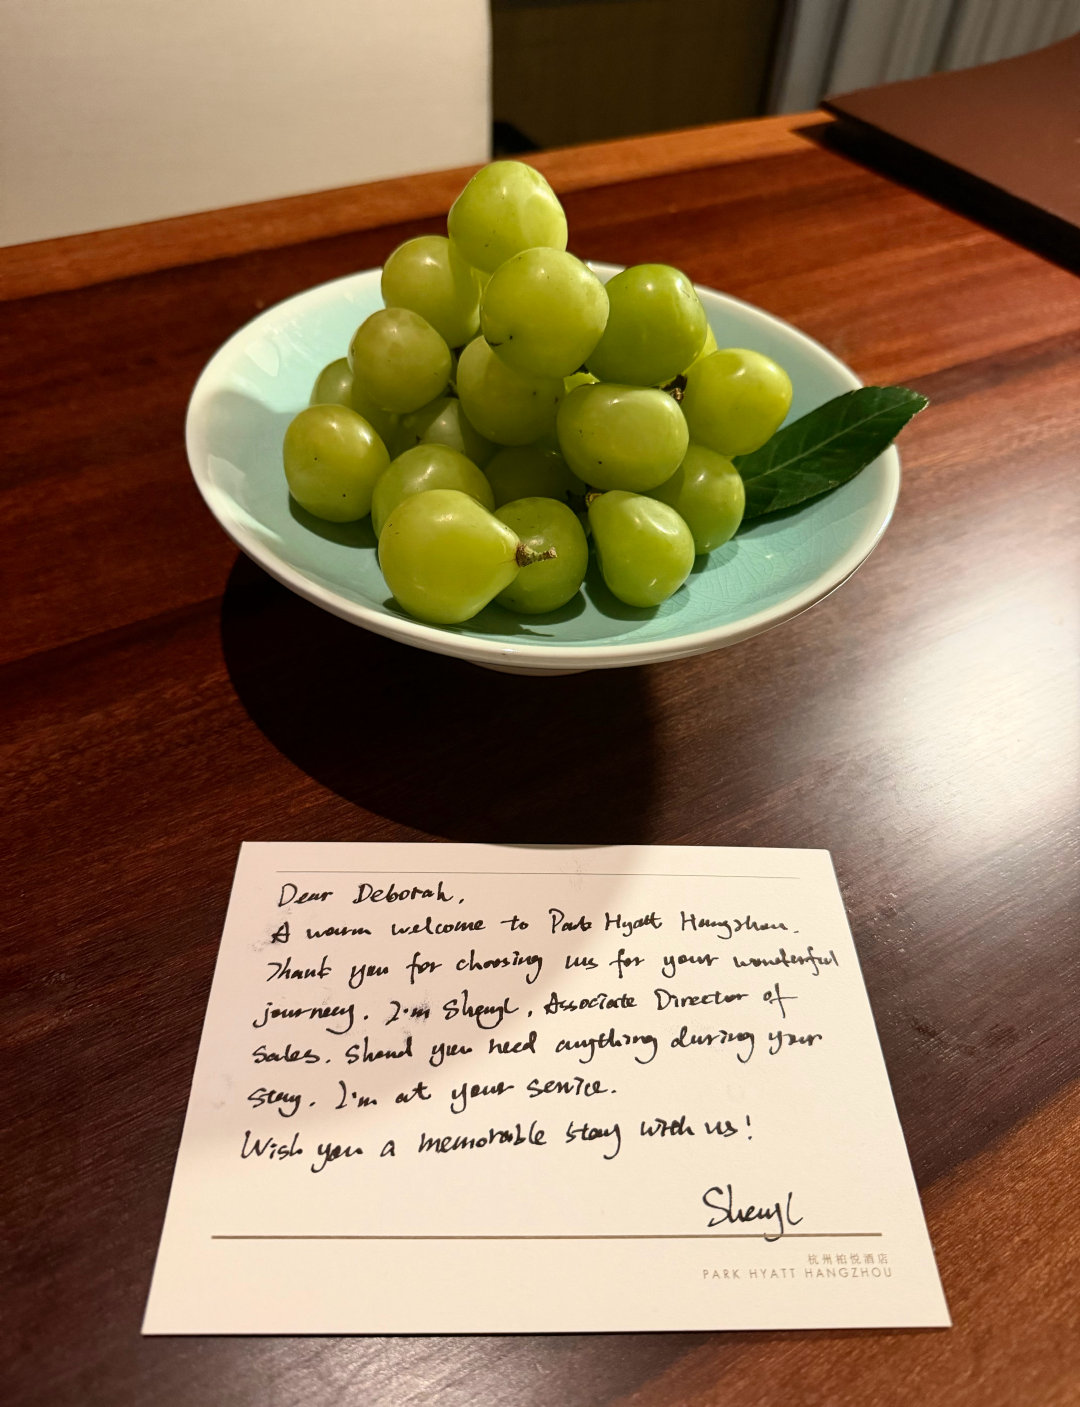 Dear Deborah,
A warm welcome to Park Hyatt Hangzhou.
Thank you for choosing us for your wonderful
journey. I'm Sheryl, Associate Director of
Sales. Shoud you need anything during your
stay. I'm at your service.
Wish you a memorable stay with us!
Sheryl
杭州柏悦酒店
PARK HYATT HANGZHOU